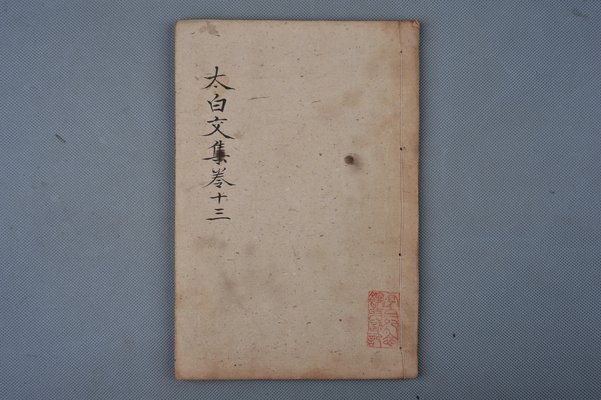 太白文集卷十三